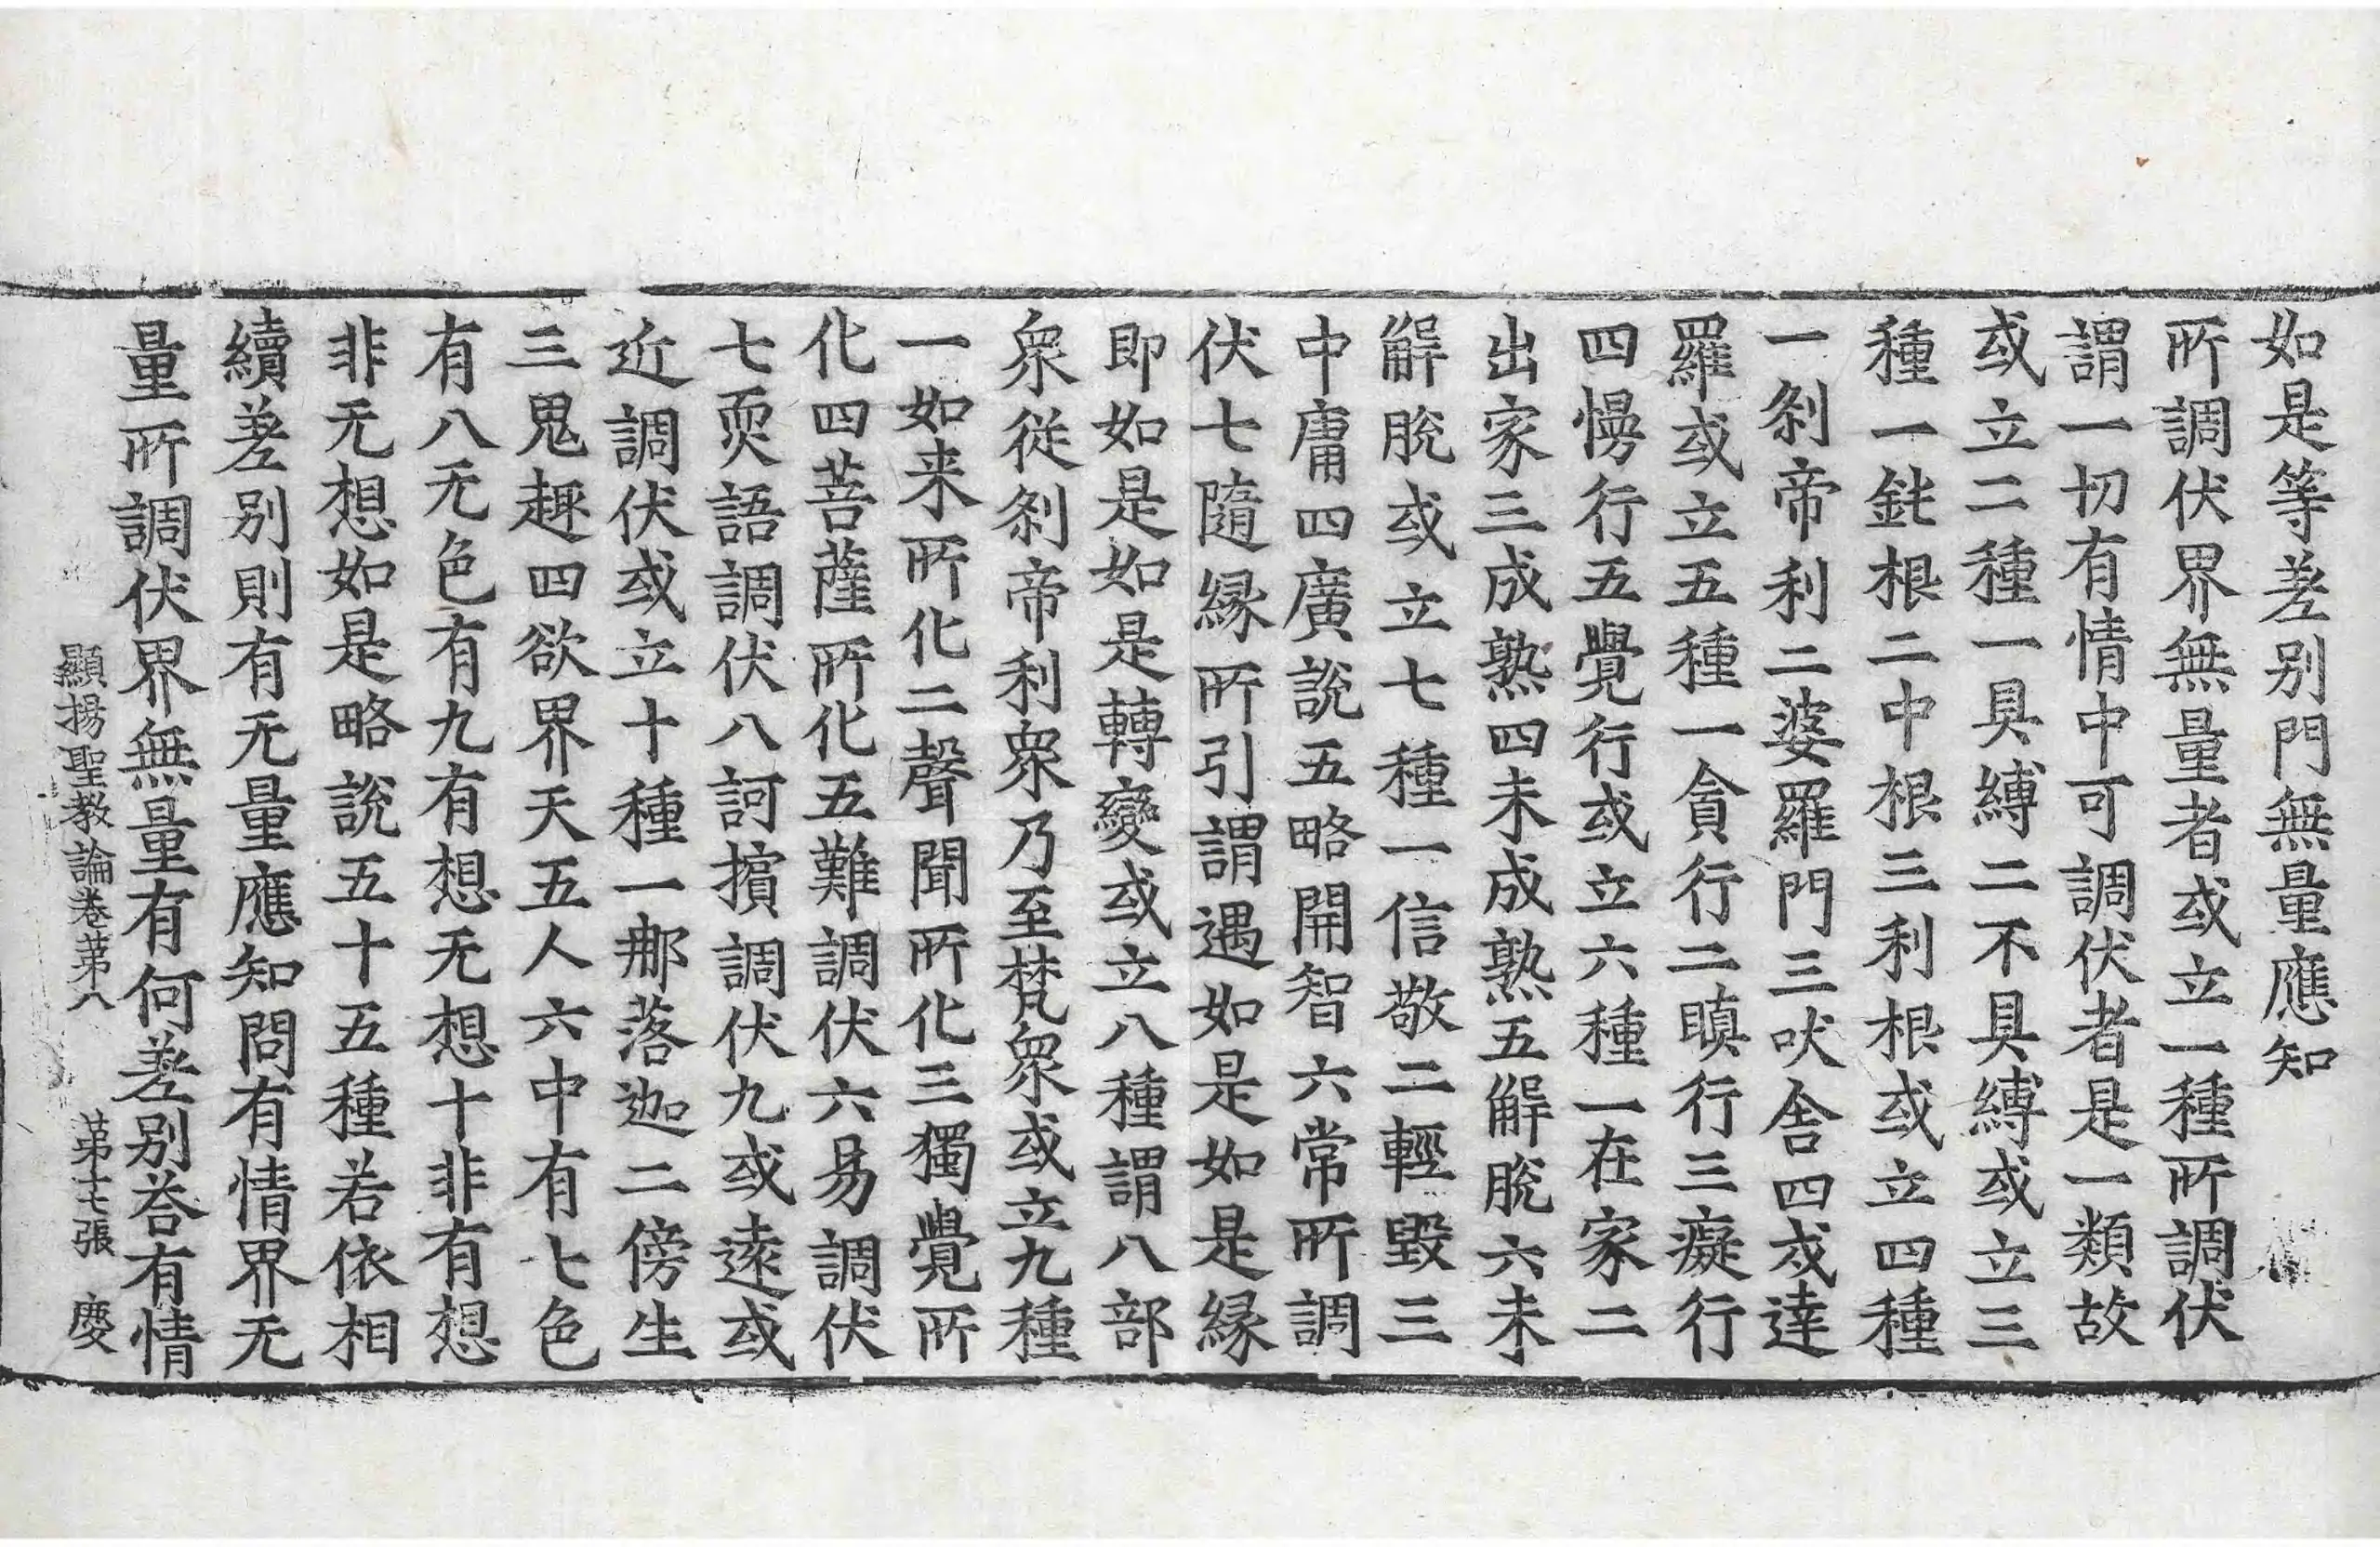 如是等差别門無量應知
所調伏界無量者或立一種所調伏
謂一切有情中可調伏者是一類故
或立二種一具縛二不具縛或立三
種一鈍根二中根三利根或立四種
一刹帝利二婆羅門三吠舍四戍達
羅或立五種一貪行二瞋行三癡行
四慢行五覺行或立六種一在家二
出家三成熟四未成熟五解脫六未
解脫或立七種一信敬二輕毀三
中庸四廣說五略開智六常所調
伏七隨緣所引謂遇如是如是緣
即如是如是轉變或立八種謂八部
衆從刹帝利衆乃至梵衆或立九種
一如来所化二聲聞所化三獨覺所
化四菩薩所化五難調伏六易調伏
七耎語調伏八訶擯調伏九或遠或
近調伏或立十種一那落迦二傍生
三鬼趣四欲界天五人六中有七色
有八无色有九有想无想十非有想
非无想如是略說五十五種若依相
續差别則有无量應知問有情界无
量所調伏界無量有何差别荅有情
顯揚聖教論卷第八　第十七張　慶